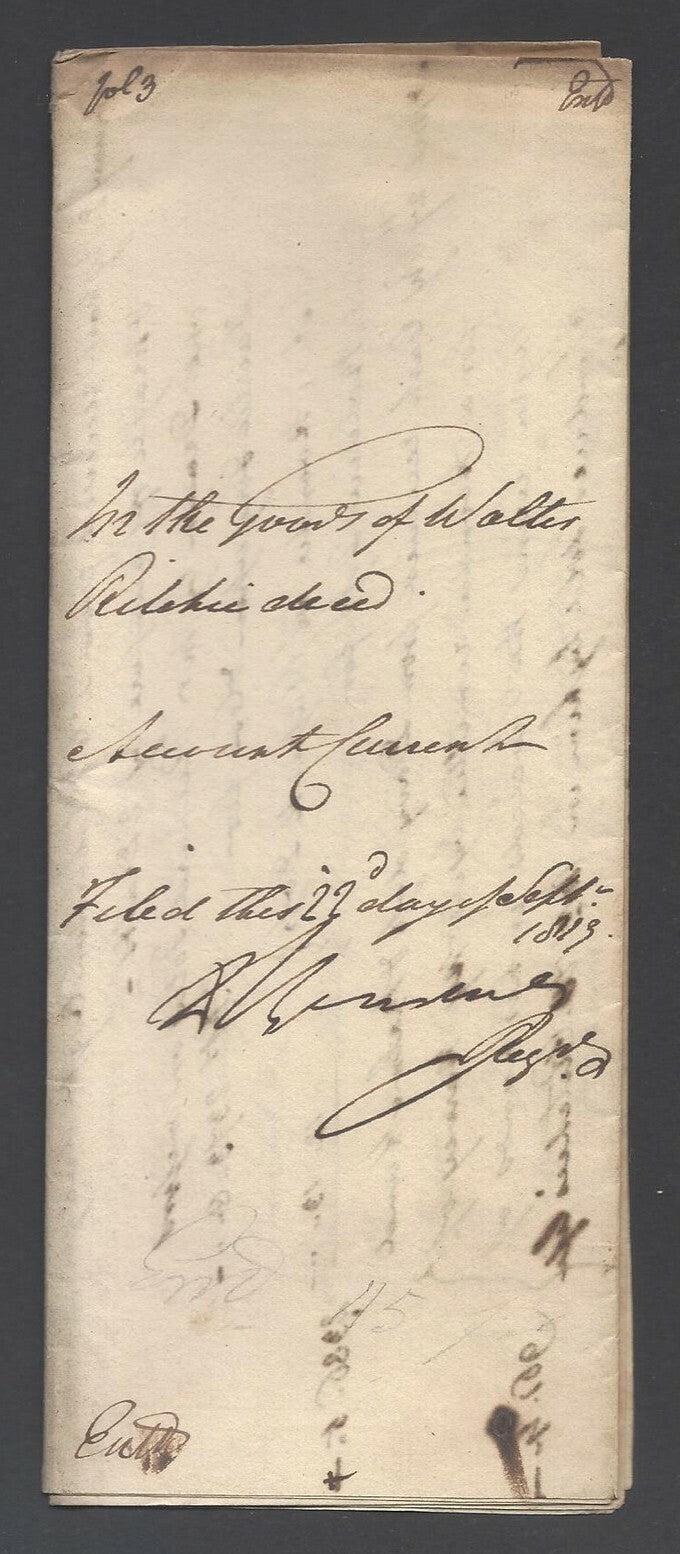 fol 3
Entd
In the Goods of Walter
Ritchie deced.
Account Current
Filed this 22d day of Septr
1819.
Regr
45
Entd